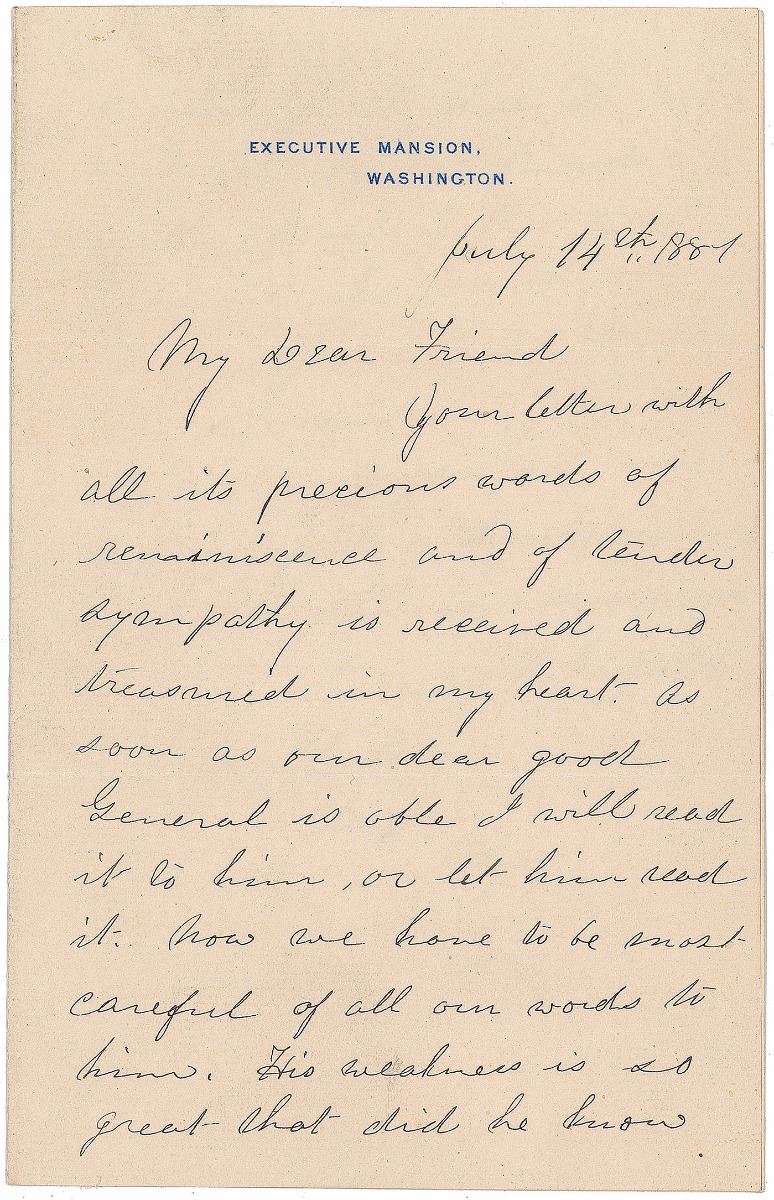 EXECUTIVE MANSION,
WASHINGTON.
July 14th, 1881
My Dear Friend
Your letter with
all its precious words of
renainiscence and of tender
sympathy is received and
treasured in my heart. As
soon as our dear good
General is able I will read
it to him, or let him read
it. Now we have to be most
careful of all our words to
him. His weakness is so
great that did he know